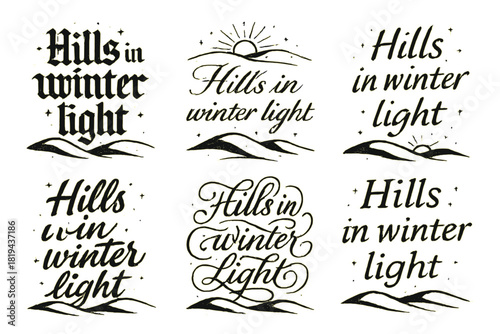 Hills in
winter
light
Hills in
winter light
Hills
in winter
light
Hills
win
winter
light
Hills in
winter
Light
Hills
in winter
light
Adobe Stock | #1819437186